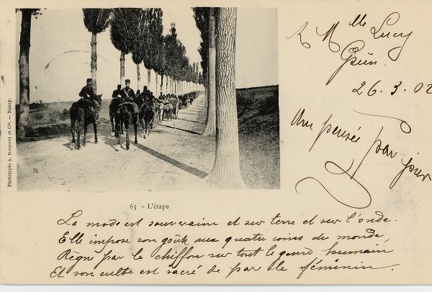 à Mlle Lucy
26.3.02
Une pensée par jour
Phototypie A. Bergeret et Cie. - Nancy.
65 - L'étape
La mode est souveraine et sur terre et sur l'onde.
Elle impose son goût aux quatre coins du monde,
Règne par le chiffon sur tout le genre humain
Et son culte est sacré de par le féminin.